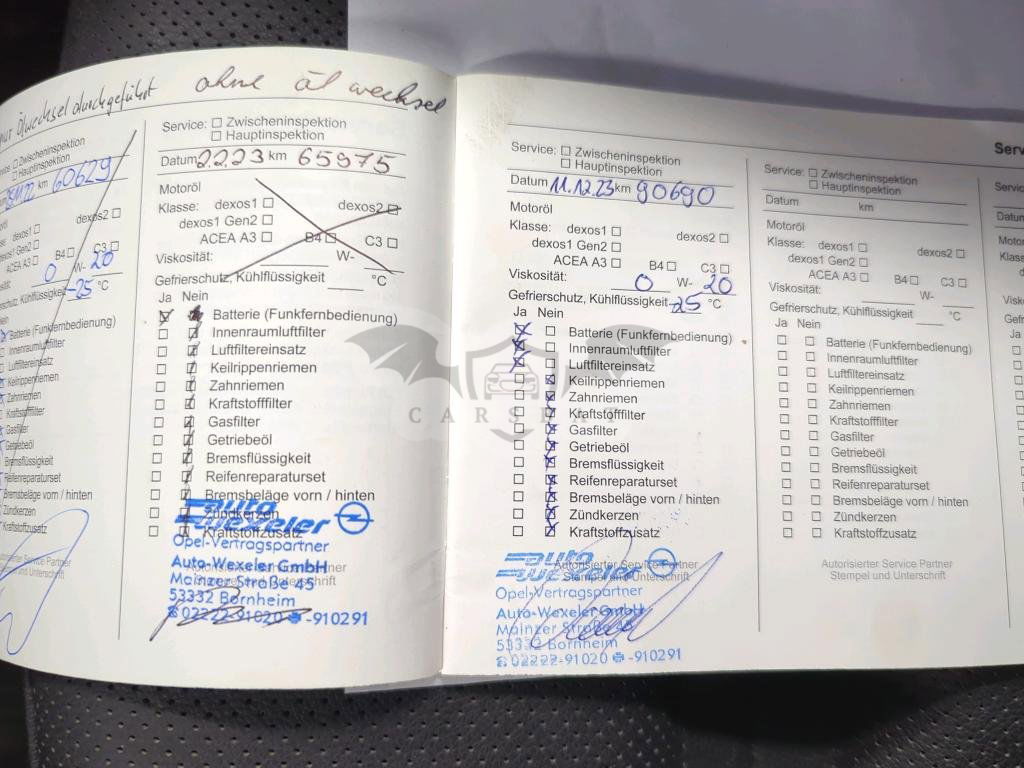 nur Ölwechsel durchgeführt
ohne öl wechsel
Zwischeninspektion
Hauptinspektion
km 60629
dexos2
dexos1
Gen2
ACEA A3
B4
C3
0 W- 20
Gefrierschutz, Kühlflüssigkeit -25 °C
Nein
Batterie (Funkfernbedienung)
Innenraumluftfilter
Luftfiltereinsatz
Keilrippenriemen
Zahnriemen
Kraftstofffilter
Gasfilter
Getriebeöl
Bremsflüssigkeit
Reifenreparaturset
Bremsbeläge vorn / hinten
Zündkerzen
Kraftstoffzusatz
Autorisierter Service Partner
Stempel und Unterschrift
Service: Zwischeninspektion
Hauptinspektion
Datum 2.2.23 km 65975
Motoröl
Klasse: dexos1 dexos2
dexos1 Gen2
ACEA A3 B4 C3
Viskosität: W-
Gefrierschutz, Kühlflüssigkeit °C
Ja Nein
Batterie (Funkfernbedienung)
Innenraumluftfilter
Luftfiltereinsatz
Keilrippenriemen
Zahnriemen
Kraftstofffilter
Gasfilter
Getriebeöl
Bremsflüssigkeit
Reifenreparaturset
Bremsbeläge vorn / hinten
Zündkerzen
Kraftstoffzusatz
auto wexeler
Opel-Vertragspartner
Autorisierter Service Partner
Stempel und Unterschrift
Auto-Wexeler GmbH
Mainzer Straße 45
53332 Bornheim
02222-91020 -910291
Service: Zwischeninspektion
Hauptinspektion
Datum 11.12.23 km 90690
Motoröl
Klasse: dexos1 dexos2
dexos1 Gen2
ACEA A3 B4 C3
Viskosität: 0 W- 20
Gefrierschutz, Kühlflüssigkeit -25 °C
Ja Nein
Batterie (Funkfernbedienung)
Innenraumluftfilter
Luftfiltereinsatz
Keilrippenriemen
Zahnriemen
Kraftstofffilter
Gasfilter
Getriebeöl
Bremsflüssigkeit
Reifenreparaturset
Bremsbeläge vorn / hinten
Zündkerzen
Kraftstoffzusatz
auto wexeler
Autorisierter Service Partner
Stempel und Unterschrift
Opel-Vertragspartner
Auto-Wexeler GmbH
Mainzer Straße 45
53332 Bornheim
02222-91020 -910291
Service: Zwischeninspektion
Hauptinspektion
Datum km
Motoröl
Klasse: dexos1 dexos2
dexos1 Gen2
ACEA A3 B4 C3
Viskosität: W-
Gefrierschutz, Kühlflüssigkeit °C
Ja Nein
Batterie (Funkfernbedienung)
Innenraumluftfilter
Luftfiltereinsatz
Keilrippenriemen
Zahnriemen
Kraftstofffilter
Gasfilter
Getriebeöl
Bremsflüssigkeit
Reifenreparaturset
Bremsbeläge vorn / hinten
Zündkerzen
Kraftstoffzusatz
Autorisierter Service Partner
Stempel und Unterschrift
Ja